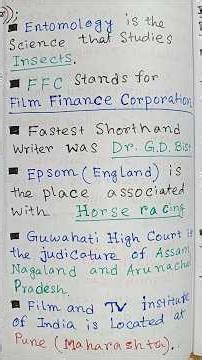 ■ Entomology is the
Science that Studies
Insects.
■ FFC Stands for
Film Finance Corporation
■ Fastest Shorthand
Writer was Dr. G.D. Bist
■ Epsom (England) is
the place associated
with Horse racing
■ Guwahati High Court is
the judicature of Assam
Nagaland and Arunachal
Pradesh.
■ Film and TV institute
of India is Located at
Pune (Maharashtra).